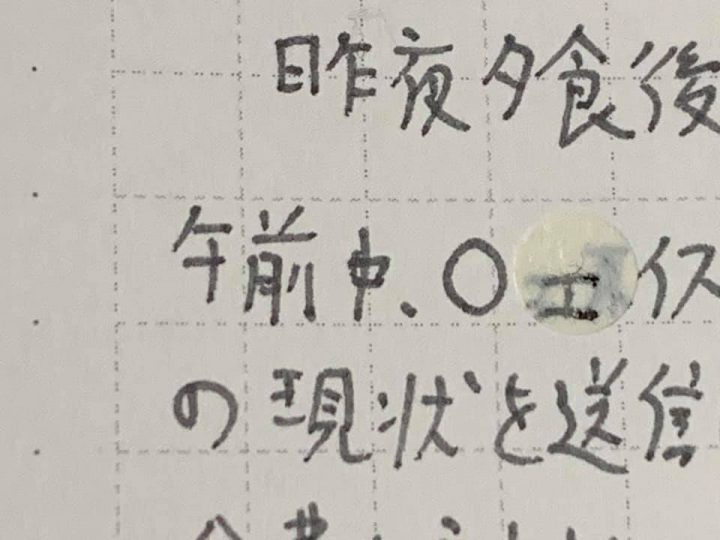 昨夜夕食後
午前中、〇イス
の現状を送信